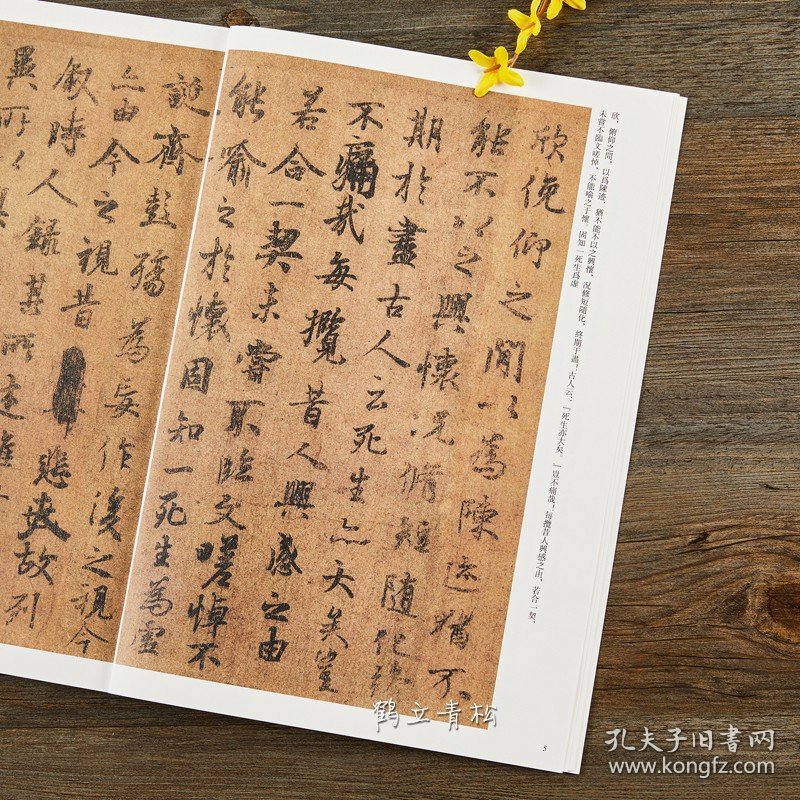 欣，俯仰之間，以爲陳迹，猶不能不以之興懷，况修短隨化，終期于盡！古人云：『死生亦大矣。』豈不痛哉！每攬昔人興感之由，若合一契，
未嘗不臨文嗟悼，不能喻之于懷。固知一死生爲虛
欣俛仰之閒以爲陳迹猶不
能不以之興懷況脩短隨化終
期於盡古人云死生亦大矣豈
不痛哉每攬昔人興感之由
若合一契未嘗不臨文嗟悼不
能喻之於懷固知一死生爲虛
誕齊彭殤爲妄作後之視今
亦由今之視昔悲夫故列
叙時人錄其所述雖
異所以
5
鹤立青松
孔夫子旧书网
www.kongfz.com